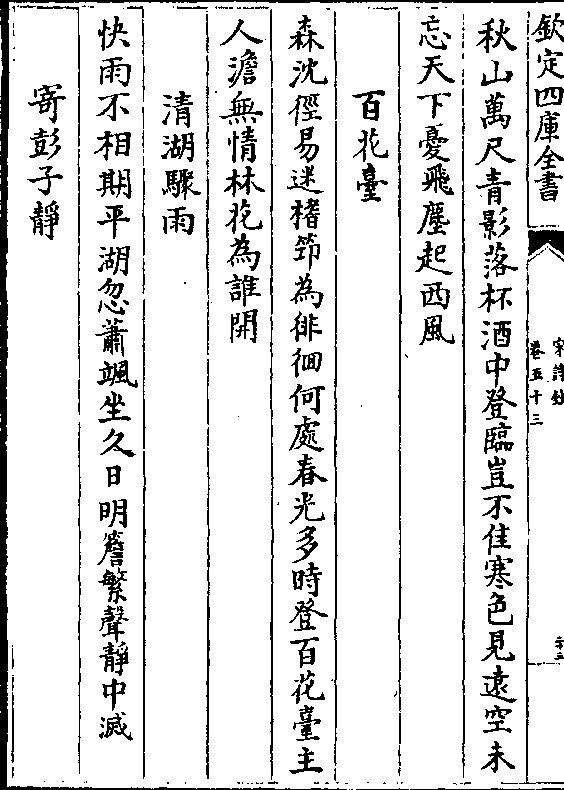 欽定四庫全書
宋詩鈔
卷五十三
秋山萬尺青影落杯酒中登臨豈不佳寒色見遠空未
忘天下憂飛塵起西風
百花臺
森沈徑易迷楮笻為徘徊何處春光多時登百花臺主
人澹無情林花為誰開
清湖驟雨
快雨不相期平湖忽蕭颯坐久日明簷繁聲靜中滅
寄彭子靜